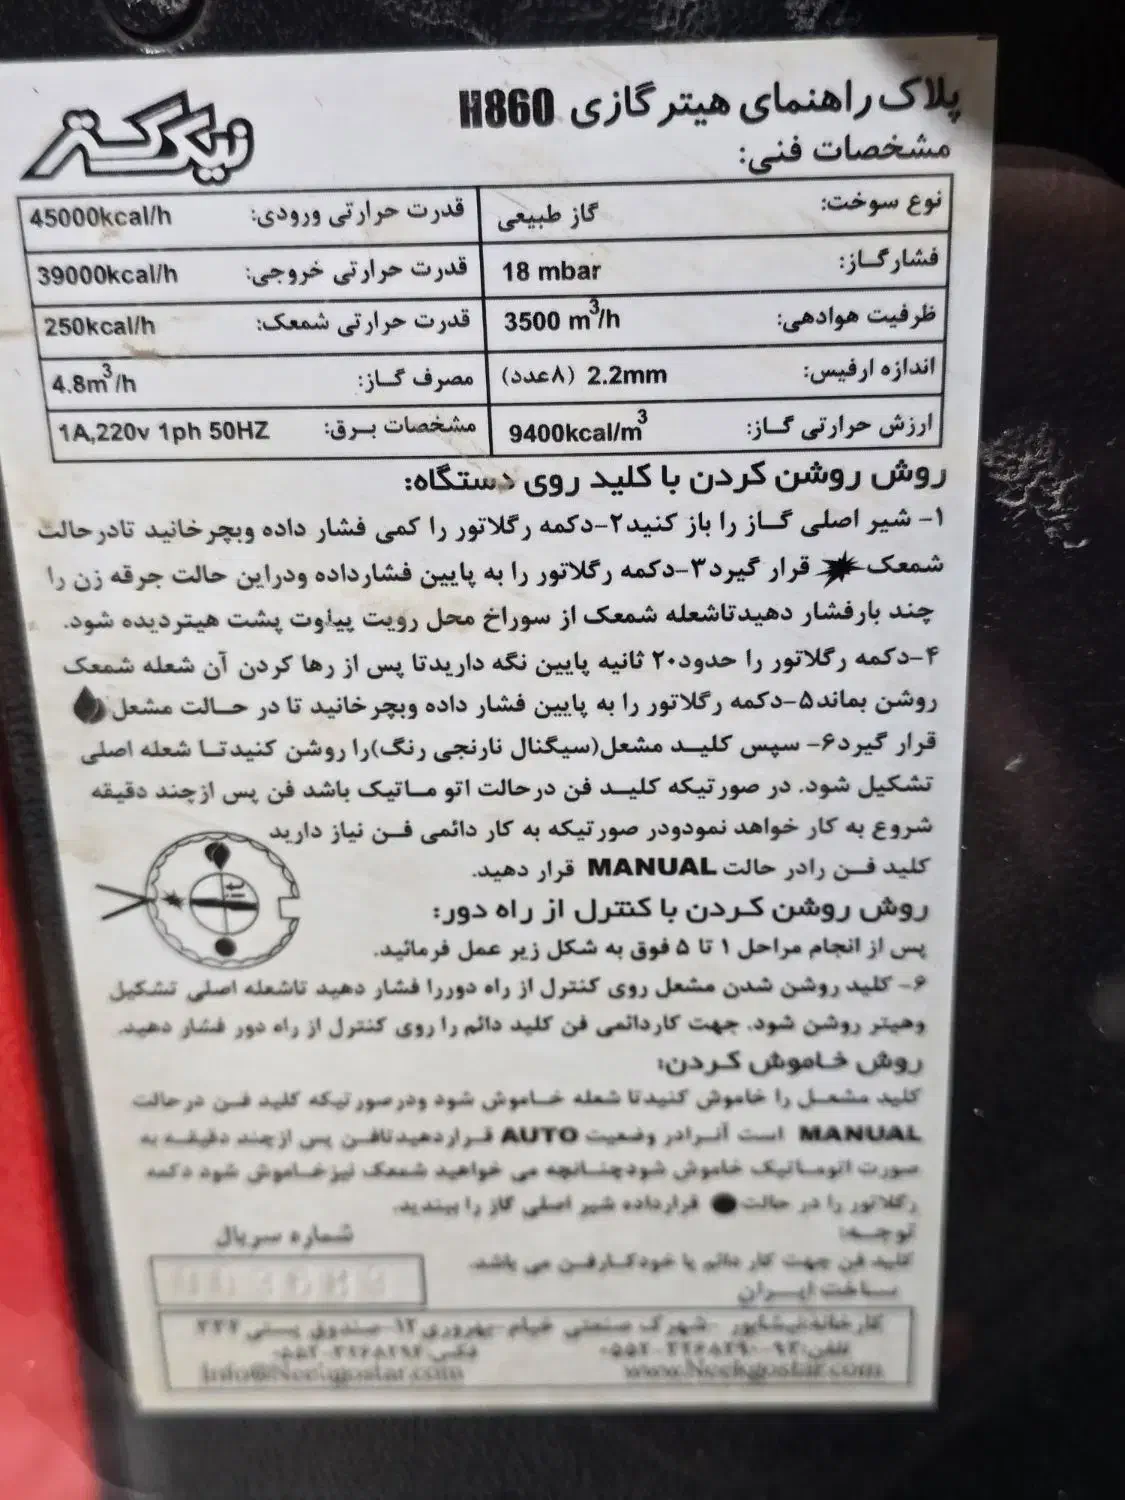 پلاک راهنمای هیتر گازی H860
نیک گستر
مشخصات فنی:
نوع سوخت: گاز طبیعی قدرت حرارتی ورودی: 45000kcal/h
فشار گاز: 18 mbar قدرت حرارتی خروجی: 39000kcal/h
ظرفیت هوادهی: 3500 m³/h قدرت حرارتی شمعک: 250kcal/h
اندازه ارفیس: 2.2mm (۸عدد) مصرف گاز: 4.8m³/h
ارزش حرارتی گاز: 9400kcal/m³ مشخصات برق: 1A,220v 1ph 50HZ
روش روشن کردن با کلید روی دستگاه:
۱- شیر اصلی گاز را باز کنید۲-دکمه رگلاتور را کمی فشار داده وبچرخانید تادرحالت
شمعک قرار گیرد۳-دکمه رگلاتور را به پایین فشارداده ودراین حالت جرقه زن را
چند بارفشار دهیدتاشعله شمعک از سوراخ محل رویت پیلوت پشت هیتردیده شود.
۴-دکمه رگلاتور را حدود۲۰ ثانیه پایین نگه داریدتا پس از رها کردن آن شعله شمعک
روشن بماند۵-دکمه رگلاتور را به پایین فشار داده وبچرخانید تا در حالت مشعل
قرار گیرد۶- سپس کلید مشعل(سیگنال نارنجی رنگ)را روشن کنیدتا شعله اصلی
تشکیل شود. در صورتیکه کلید فن درحالت اتو ماتیک باشد فن پس ازچند دقیقه
شروع به کار خواهد نمودودر صورتیکه به کار دائمی فن نیاز دارید
کلید فن رادر حالت MANUAL قرار دهید.
روش روشن کردن با کنترل از راه دور:
پس از انجام مراحل ۱ تا ۵ فوق به شکل زیر عمل فرمائید.
۶- کلید روشن شدن مشعل روی کنترل از راه دوررا فشار دهید تاشعله اصلی تشکیل
وهیتر روشن شود. جهت کاردائمی فن کلید دائم را روی کنترل از راه دور فشار دهید.
روش خاموش کردن:
کلید مشعل را خاموش کنیدتا شعله خاموش شود ودرصورتیکه کلید فن درحالت
MANUAL است آنرادر وضعیت AUTO قراردهیدتافن پس ازچند دقیقه به
صورت اتوماتیک خاموش شودچنانچه می خواهید شمعک نیزخاموش شود دکمه
رگلاتور را در حالت قرارداده شیر اصلی گاز را ببندید.
توجه:
کلید فن جهت کار دائم یا خودکارفن می باشد.
شماره سریال
ساخت ایران
کارخانه:نیشابور -شهرک صنعتی خیام-بهروری ۱۲-صندوق پستی
تلفن: فکس:
www.Neekgostar.com Info@Neekgostar.com